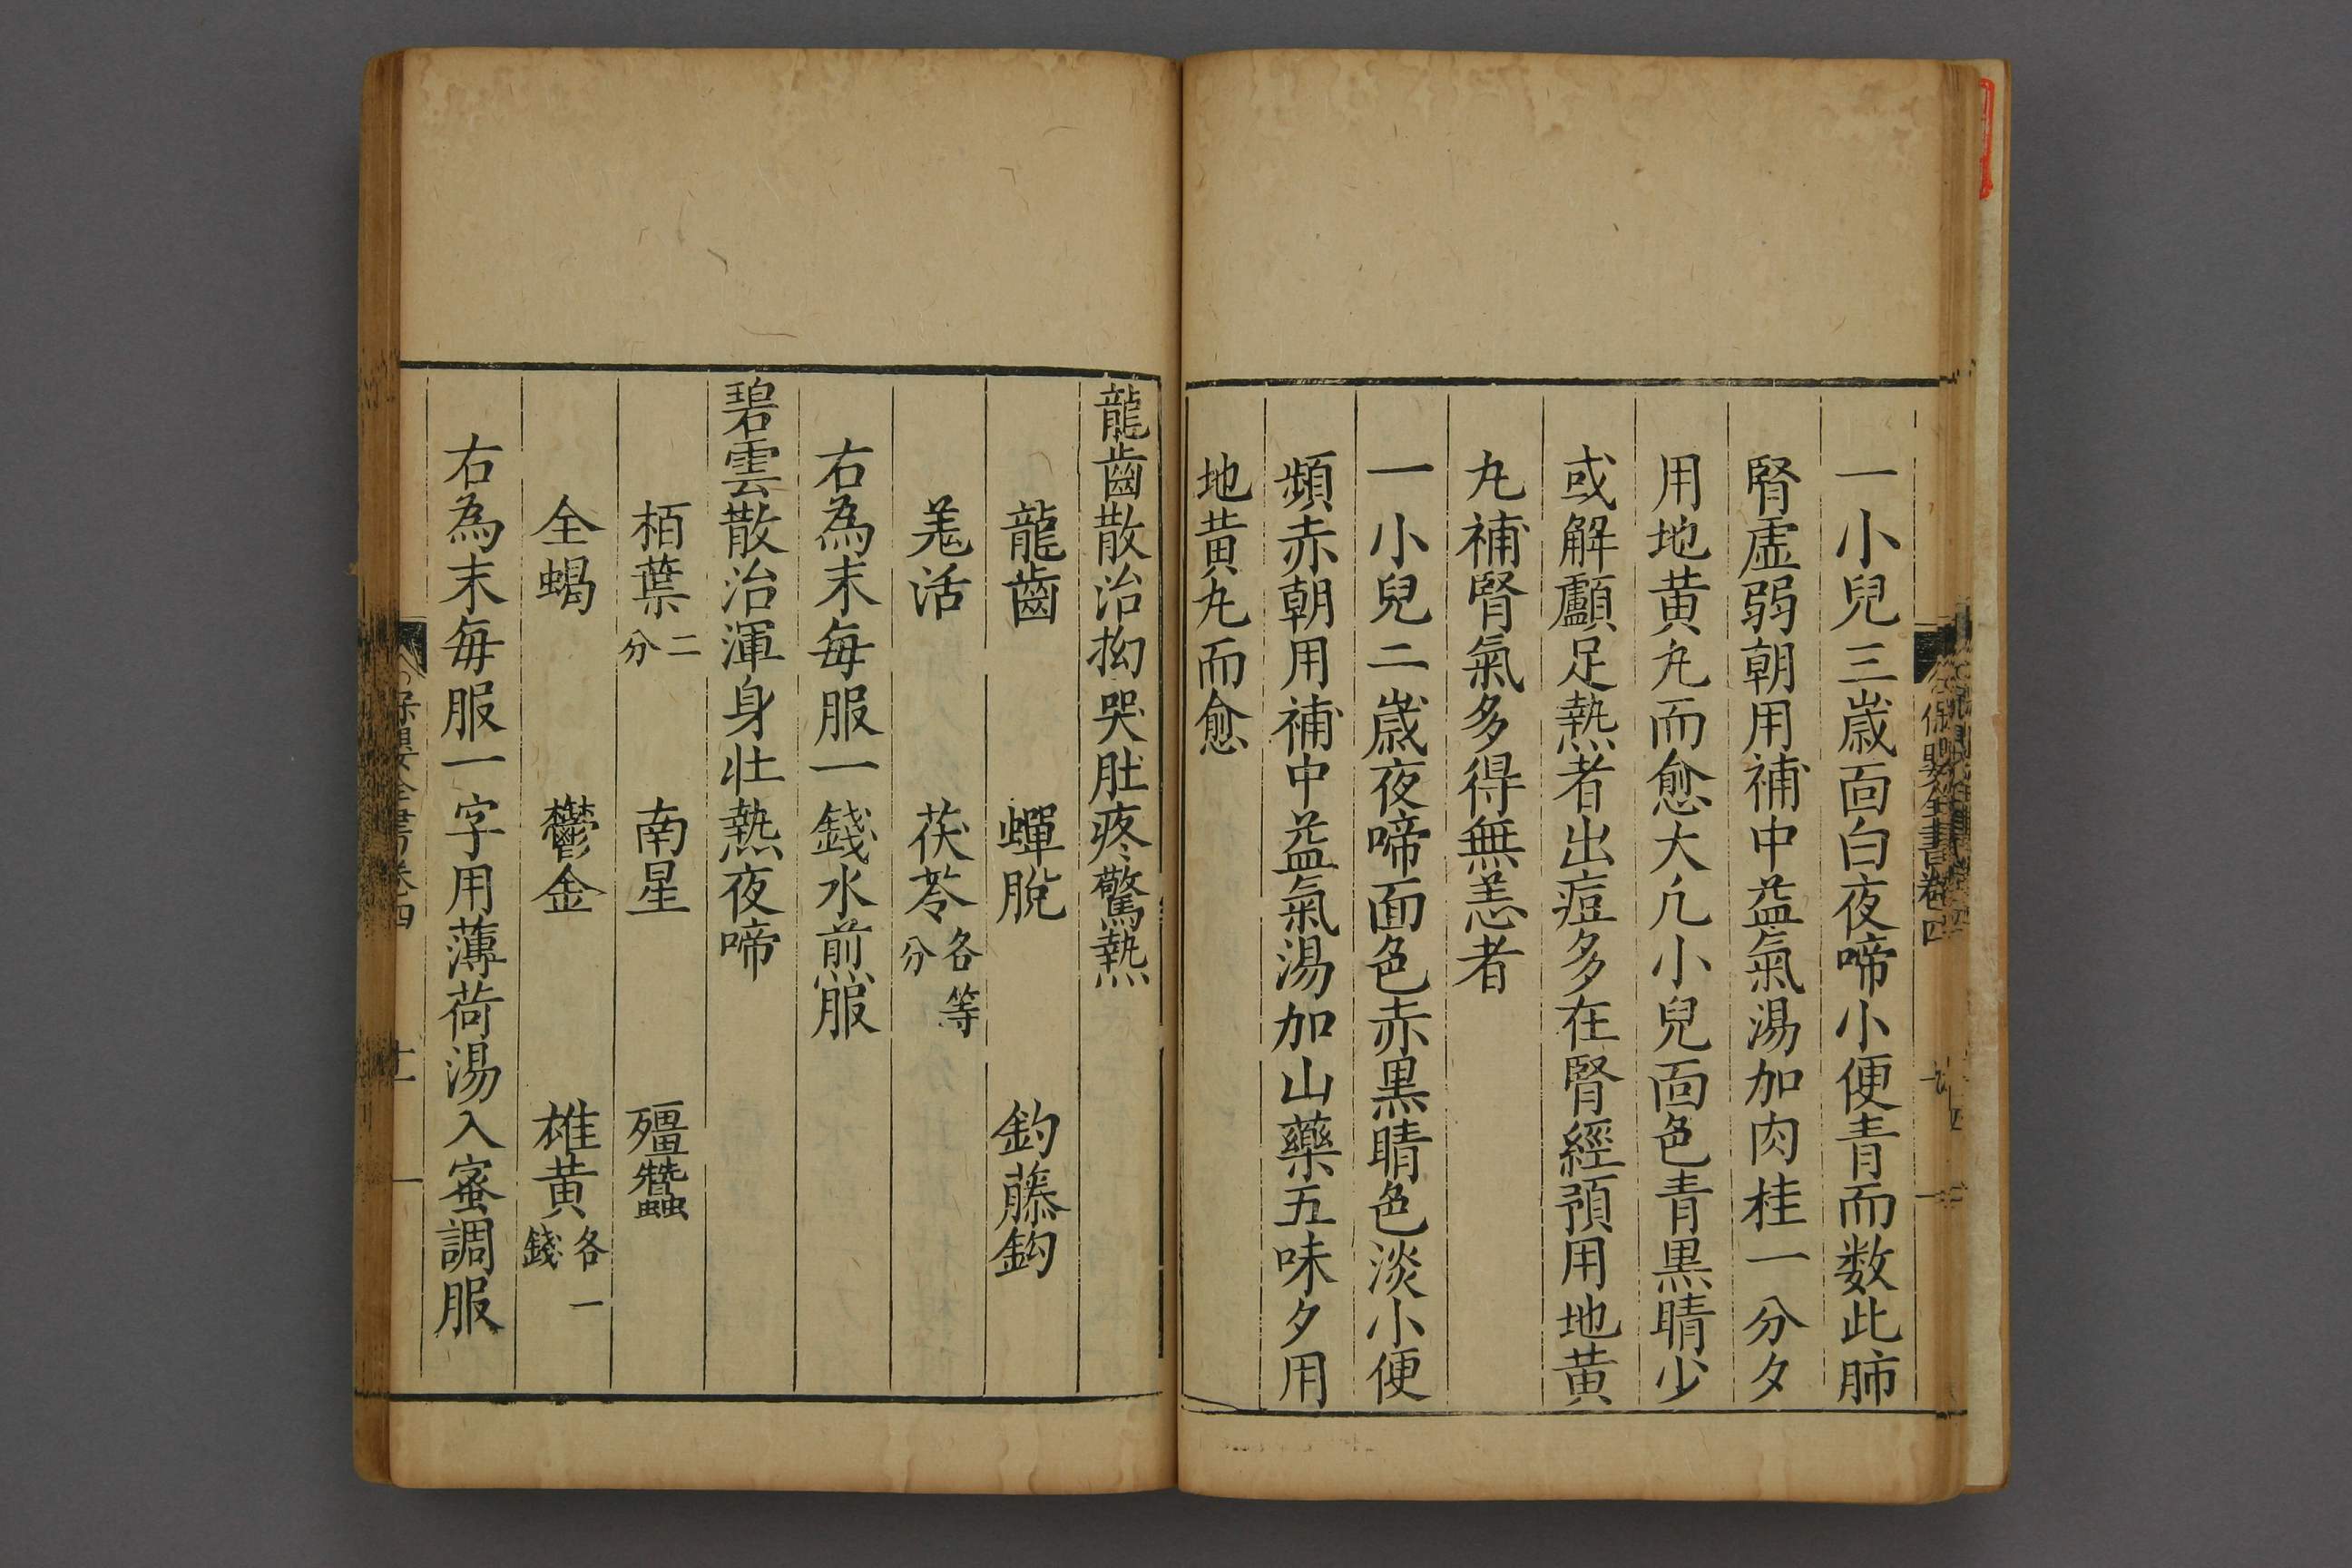 一小兒三歲面白夜啼小便青而数此肺
腎虚弱朝用補中益氣湯加肉桂一分夕
用地黄丸而愈大凢小兒面色青黒睛少
或解顱足熱者出痘多在腎經預用地黄
丸補腎氣多得無恙者
一小兒二歲夜啼面色赤黒睛色淡小便
頻赤朝用補中益氣湯加山藥五味夕用
地黄丸而愈
龍齒散治拗哭肚疼驚熱
龍齒 蟬脫 釣藤鈎
羗活 茯苓各等分
右為末每服一錢水煎服
碧雲散治渾身壯熱夜啼
栢葉二分 南星 殭蠶
全蝎 鬱金 雄黄各一錢
右為末每服一字用薄荷湯入蜜調服
保嬰全書卷四